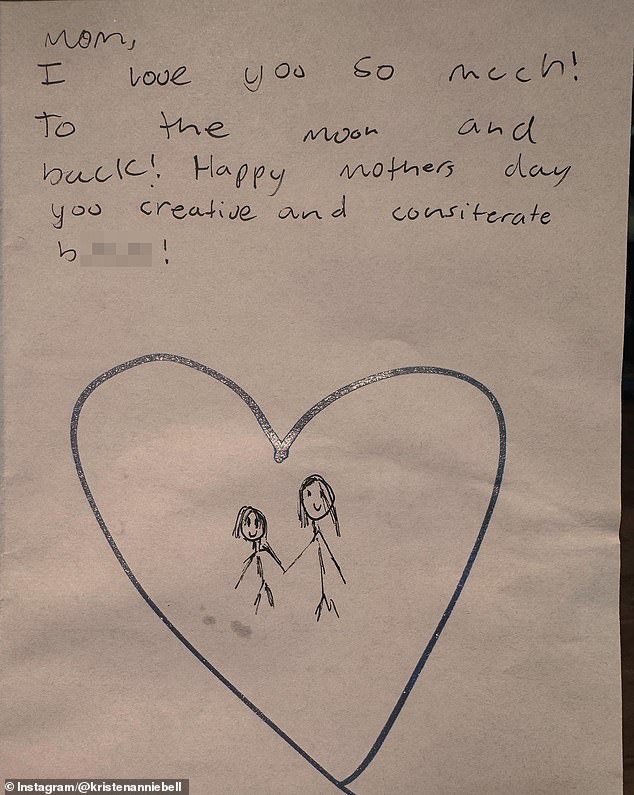 Mom,
I love you so much!
To the moon and
back! Happy mothers day
you creative and consiterate
b !
© Instagram/@kristenanniebell